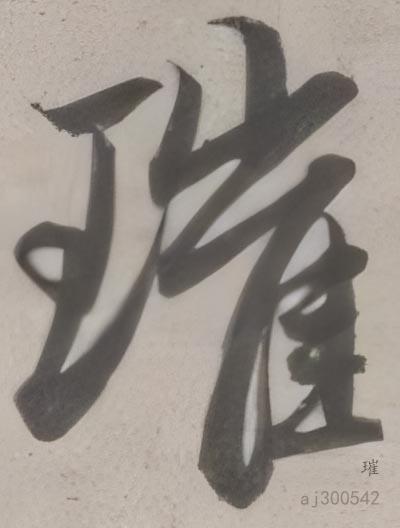 璀
璀
aj300542